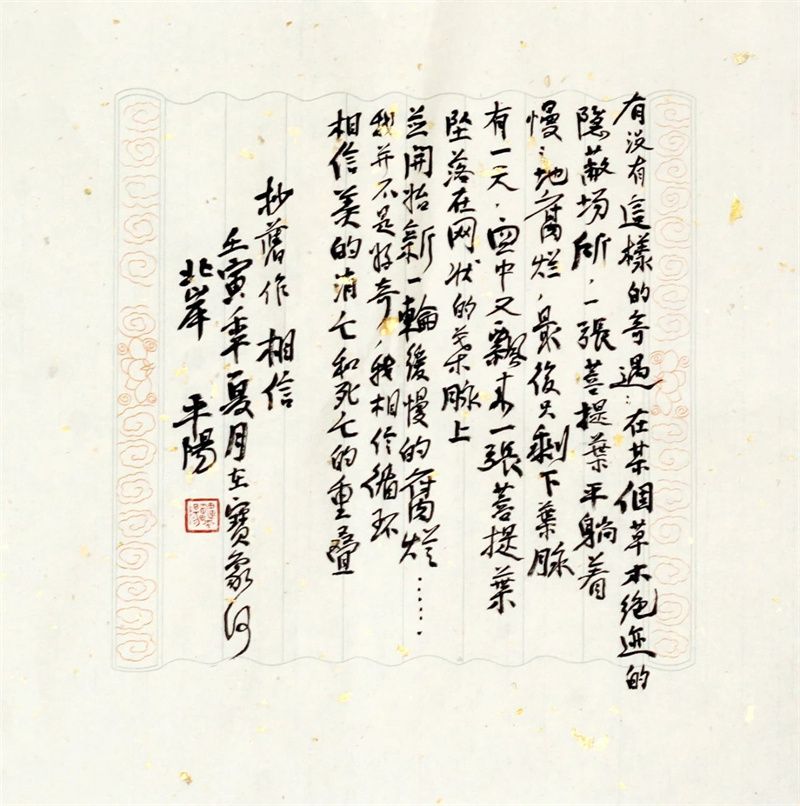 有没有這樣的奇遇：在某個草木绝迹的
隱蔽場所，一張菩提葉平躺着
慢〻地腐烂，最後只剩下葉脉
有一天，空中又飄来一張菩提葉
坠落在网状的葉脉上
并開始新一輪缓慢的腐烂……
我并不是好奇，我相信循环
相信美的消亡和死亡的重疊
抄舊作 相信
壬寅年夏月在寶象河
北岸 平陽